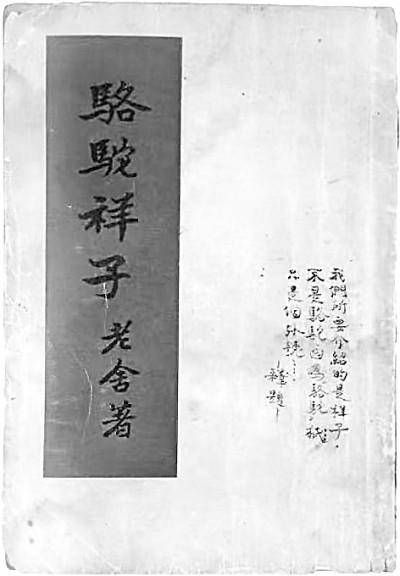 駱駝祥子 老舍著
我們所要介紹的是祥子，
不是駱駝因為駱駝，
只是個外號…
題